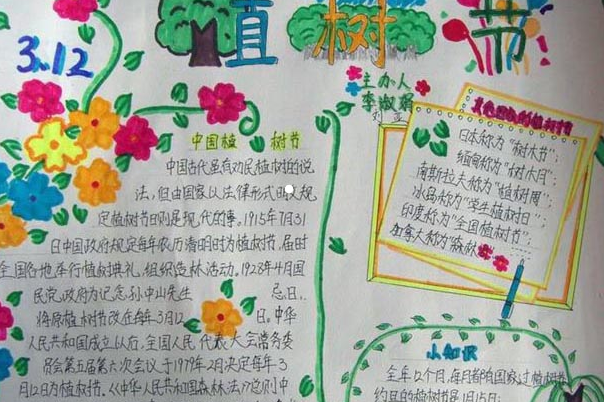 3.12
植树节
主办人
李淑娟
中国植树节
中国古代虽有对民植树的说
法,但由国家以法律形式明文规
定植树节日则是现代的事。1915年7月31
日中国政府规定每年农历清明时为植树节。届时
全国各地举行植树典礼、组织造林活动。1928年4月国
民党政府为记念孙中山先生 忌日、
将原植树节改在每年3月12日。中华
人民共和国成立以后,全国人民代表大会常务委
员会第五届第六次会议于1979年2月决定每年3
月12日为植树节。《中华人民共和国森林法》总则中
其他国家的植树节
日本称为"树木节";
缅甸称为"树木月";
南斯拉夫称为"植树周";
冰岛称为"学生植树日";
印度称为"全国植树节";
加拿大称为"森林
小知识
全年12个月,每月都有国家过植树节
约旦的植树节是1月15日;